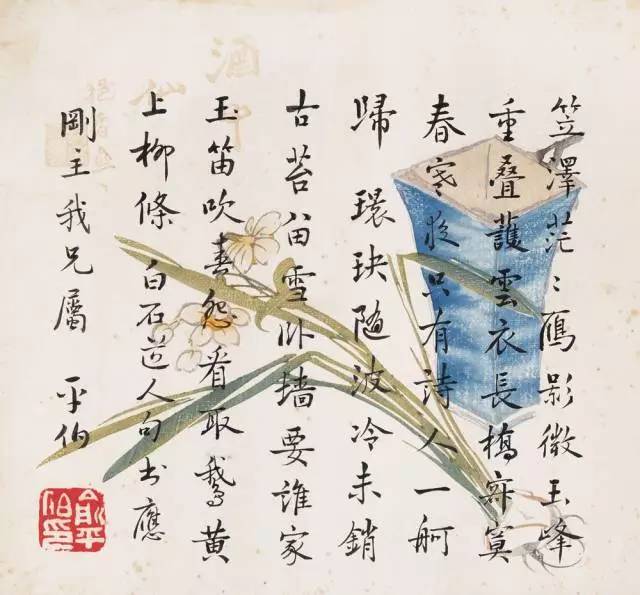 笠澤茫〻鴈影微玉峰
重叠護雲衣長橋寂寞
春寒夜只有詩人一舸
歸 環玦随波冷未銷
古苔畄雪卧墙要誰家
玉笛吹春怨看取鵝黄
上柳條 白石道人句书應
剛主我兄屬 平伯
俞平伯印
酒中仙